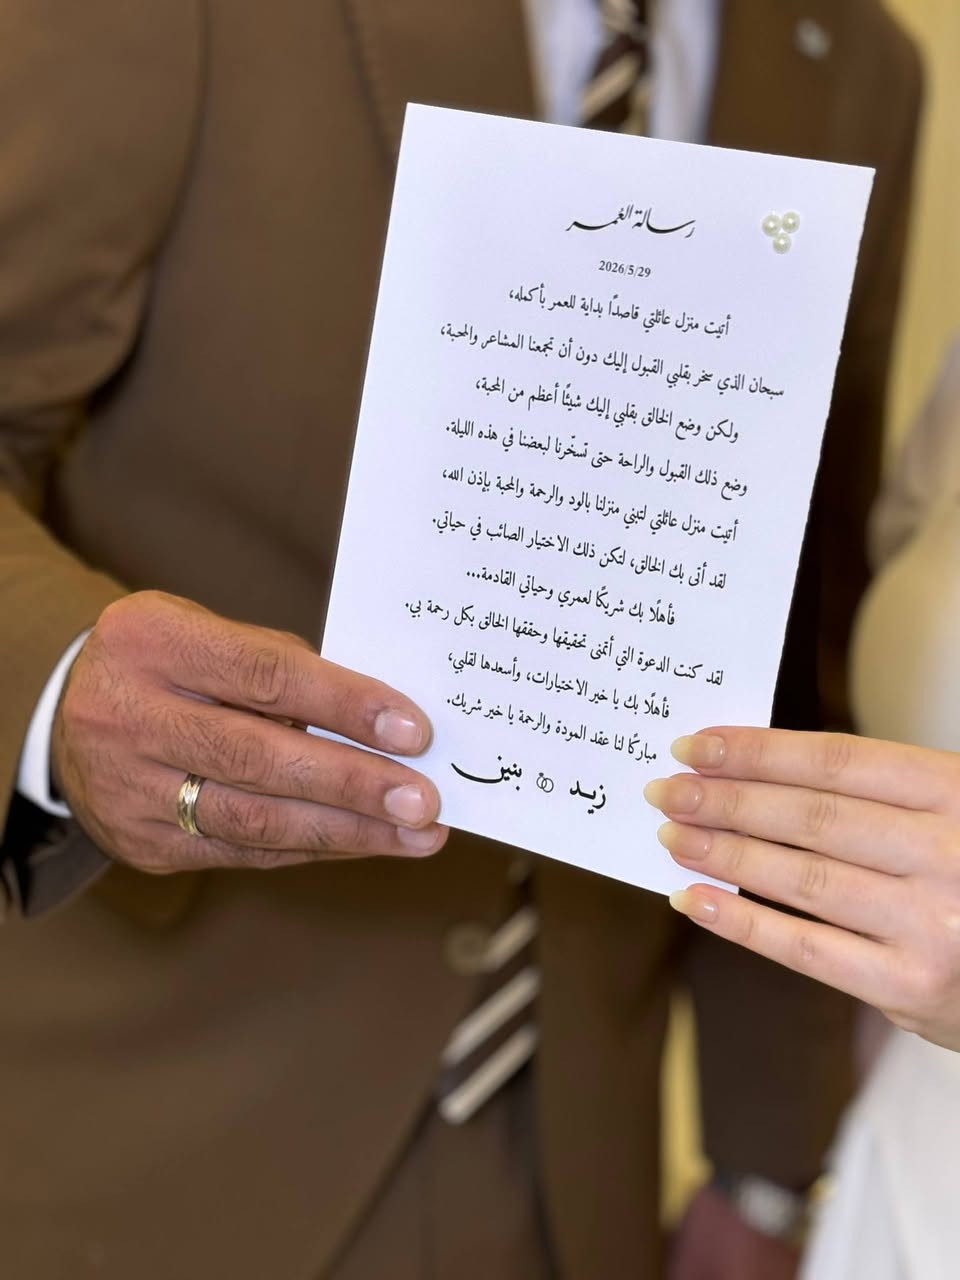 رسالة العمر
2026/5/29
أتيت منزل عائلتي قاصدًا بداية للعمر بأكمله،
سبحان الذي سخر بقلبي القبول إليك دون أن تجمعنا المشاعر والمحبة،
ولكن وضع الخالق بقلبي إليك شيئًا أعظم من المحبة،
وضع ذلك القبول والراحة حتى تسخّرنا لبعضنا في هذه الليلة.
أتيت منزل عائلتي لتبني منزلنا بالود والرحمة والمحبة بإذن الله،
لقد أتى بك الخالق، لتكن ذلك الاختيار الصائب في حياتي.
فأهلًا بك شريكًا لعمري وحياتي القادمة...
لقد كنت الدعوة التي أتمنى تحقيقها وحققها الخالق بكل رحمة بي.
فأهلًا بك يا خير الاختيارات، وأسعدها لقلبي،
مباركًا لنا عقد المودة والرحمة يا خير شريك.
زيد بنين